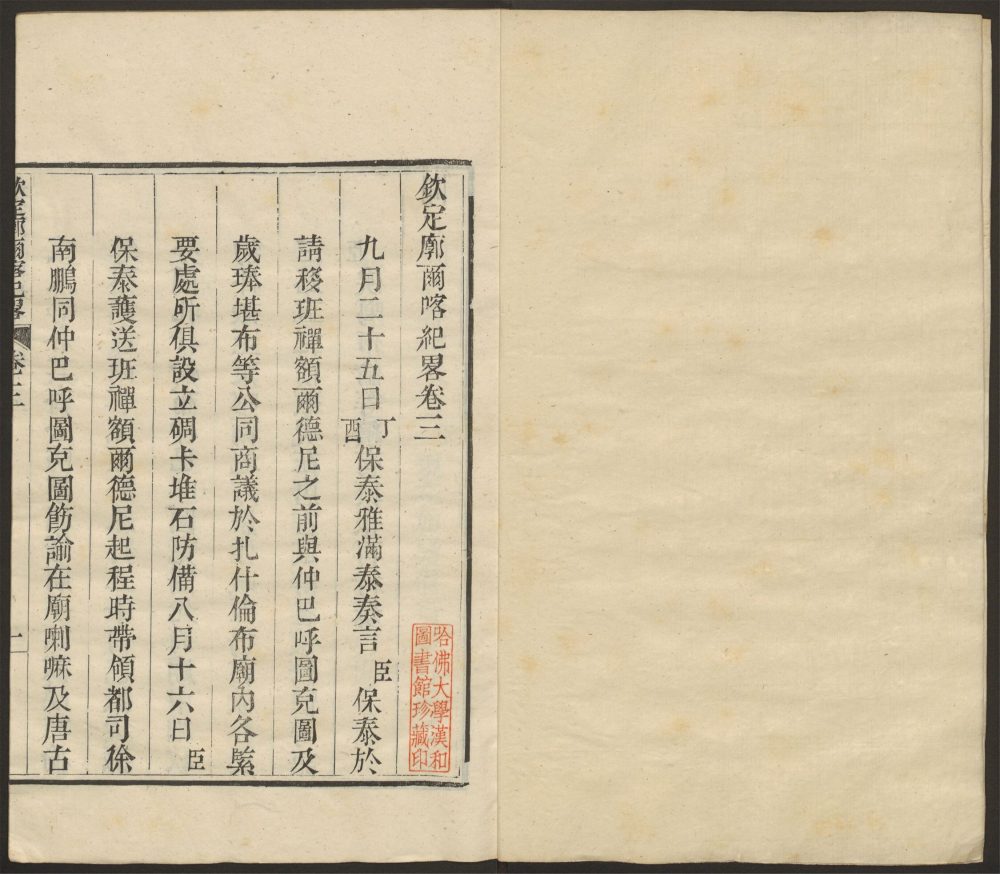 欽定廓爾喀紀畧卷三
九月二十五日丁酉保泰雅滿泰奏言臣保泰於
請移班禪額爾德尼之前與仲巴呼圖克圖及
歲琫堪布等公同商議於扎什倫布廟內各緊
要處所俱設立碉卡堆石防備八月十六日臣
保泰護送班禪額爾德尼起程時帶領都司徐
南鵬同仲巴呼圖克圖飭諭在廟喇嘛及唐古
欽定廓爾喀紀畧
卷三
一
哈佛大學漢和
圖書館珍藏印